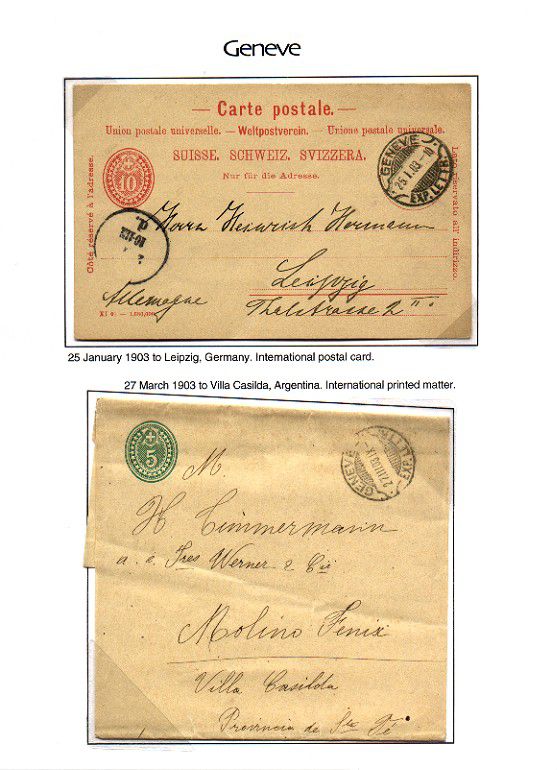 Geneve
Carte postale.
Union postale universelle. — Weltpostverein. — Unione postale universale.
SUISSE. SCHWEIZ. SVIZZERA.
Nur für die Adresse.
Côté réservé à l'adresse.
Lato riservato all' indirizzo.
10
GENEVE
25.I.03.-10
EXP. LETTR.
Herrn Heinrich Hermann
Leipzig
Allemagne
Thalstrasse 2 II
25 January 1903 to Leipzig, Germany. International postal card.
27 March 1903 to Villa Casilda, Argentina. International printed matter.
5
GENEVE
27.III.03.XI-
EXP. LETTR.
M.
H Cimmermann
a. c. Fres Werner & Cie
Molino Fenix
Villa Casilda
Provincia de Sta Fé